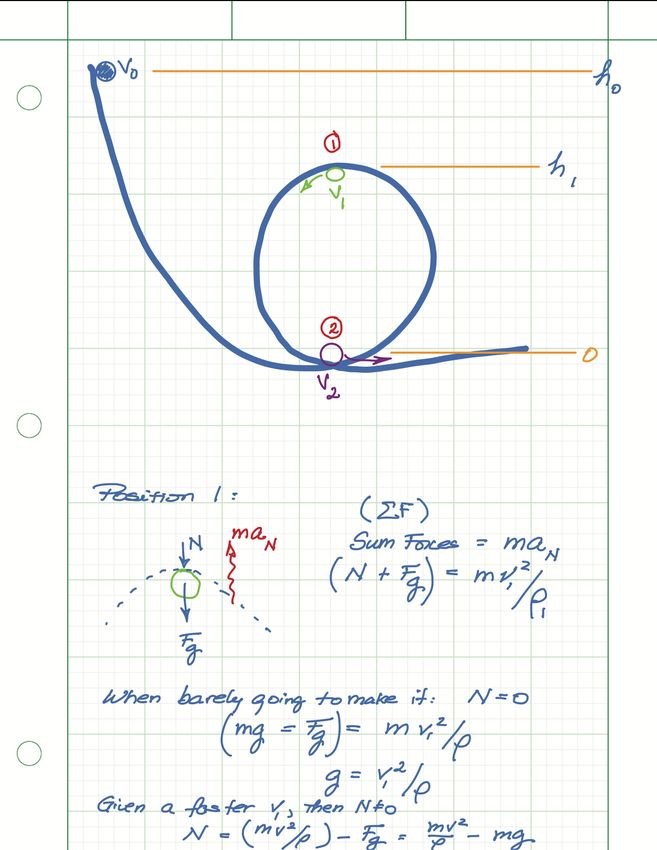 V₀
h₀
①
h₁
V₁
②
0
V₂
Position 1:
(ΣF)
N
ma_N
Sum Forces = ma_N
(N + F_g) = m v₁²/ρ₁
F_g
When barely going to make it: N=0
(mg = F_g) = m v₁²/ρ
g = v₁²/ρ
Given a faster v₁, then N≠0
N = (mv²/ρ) - F_g = mv²/ρ - mg